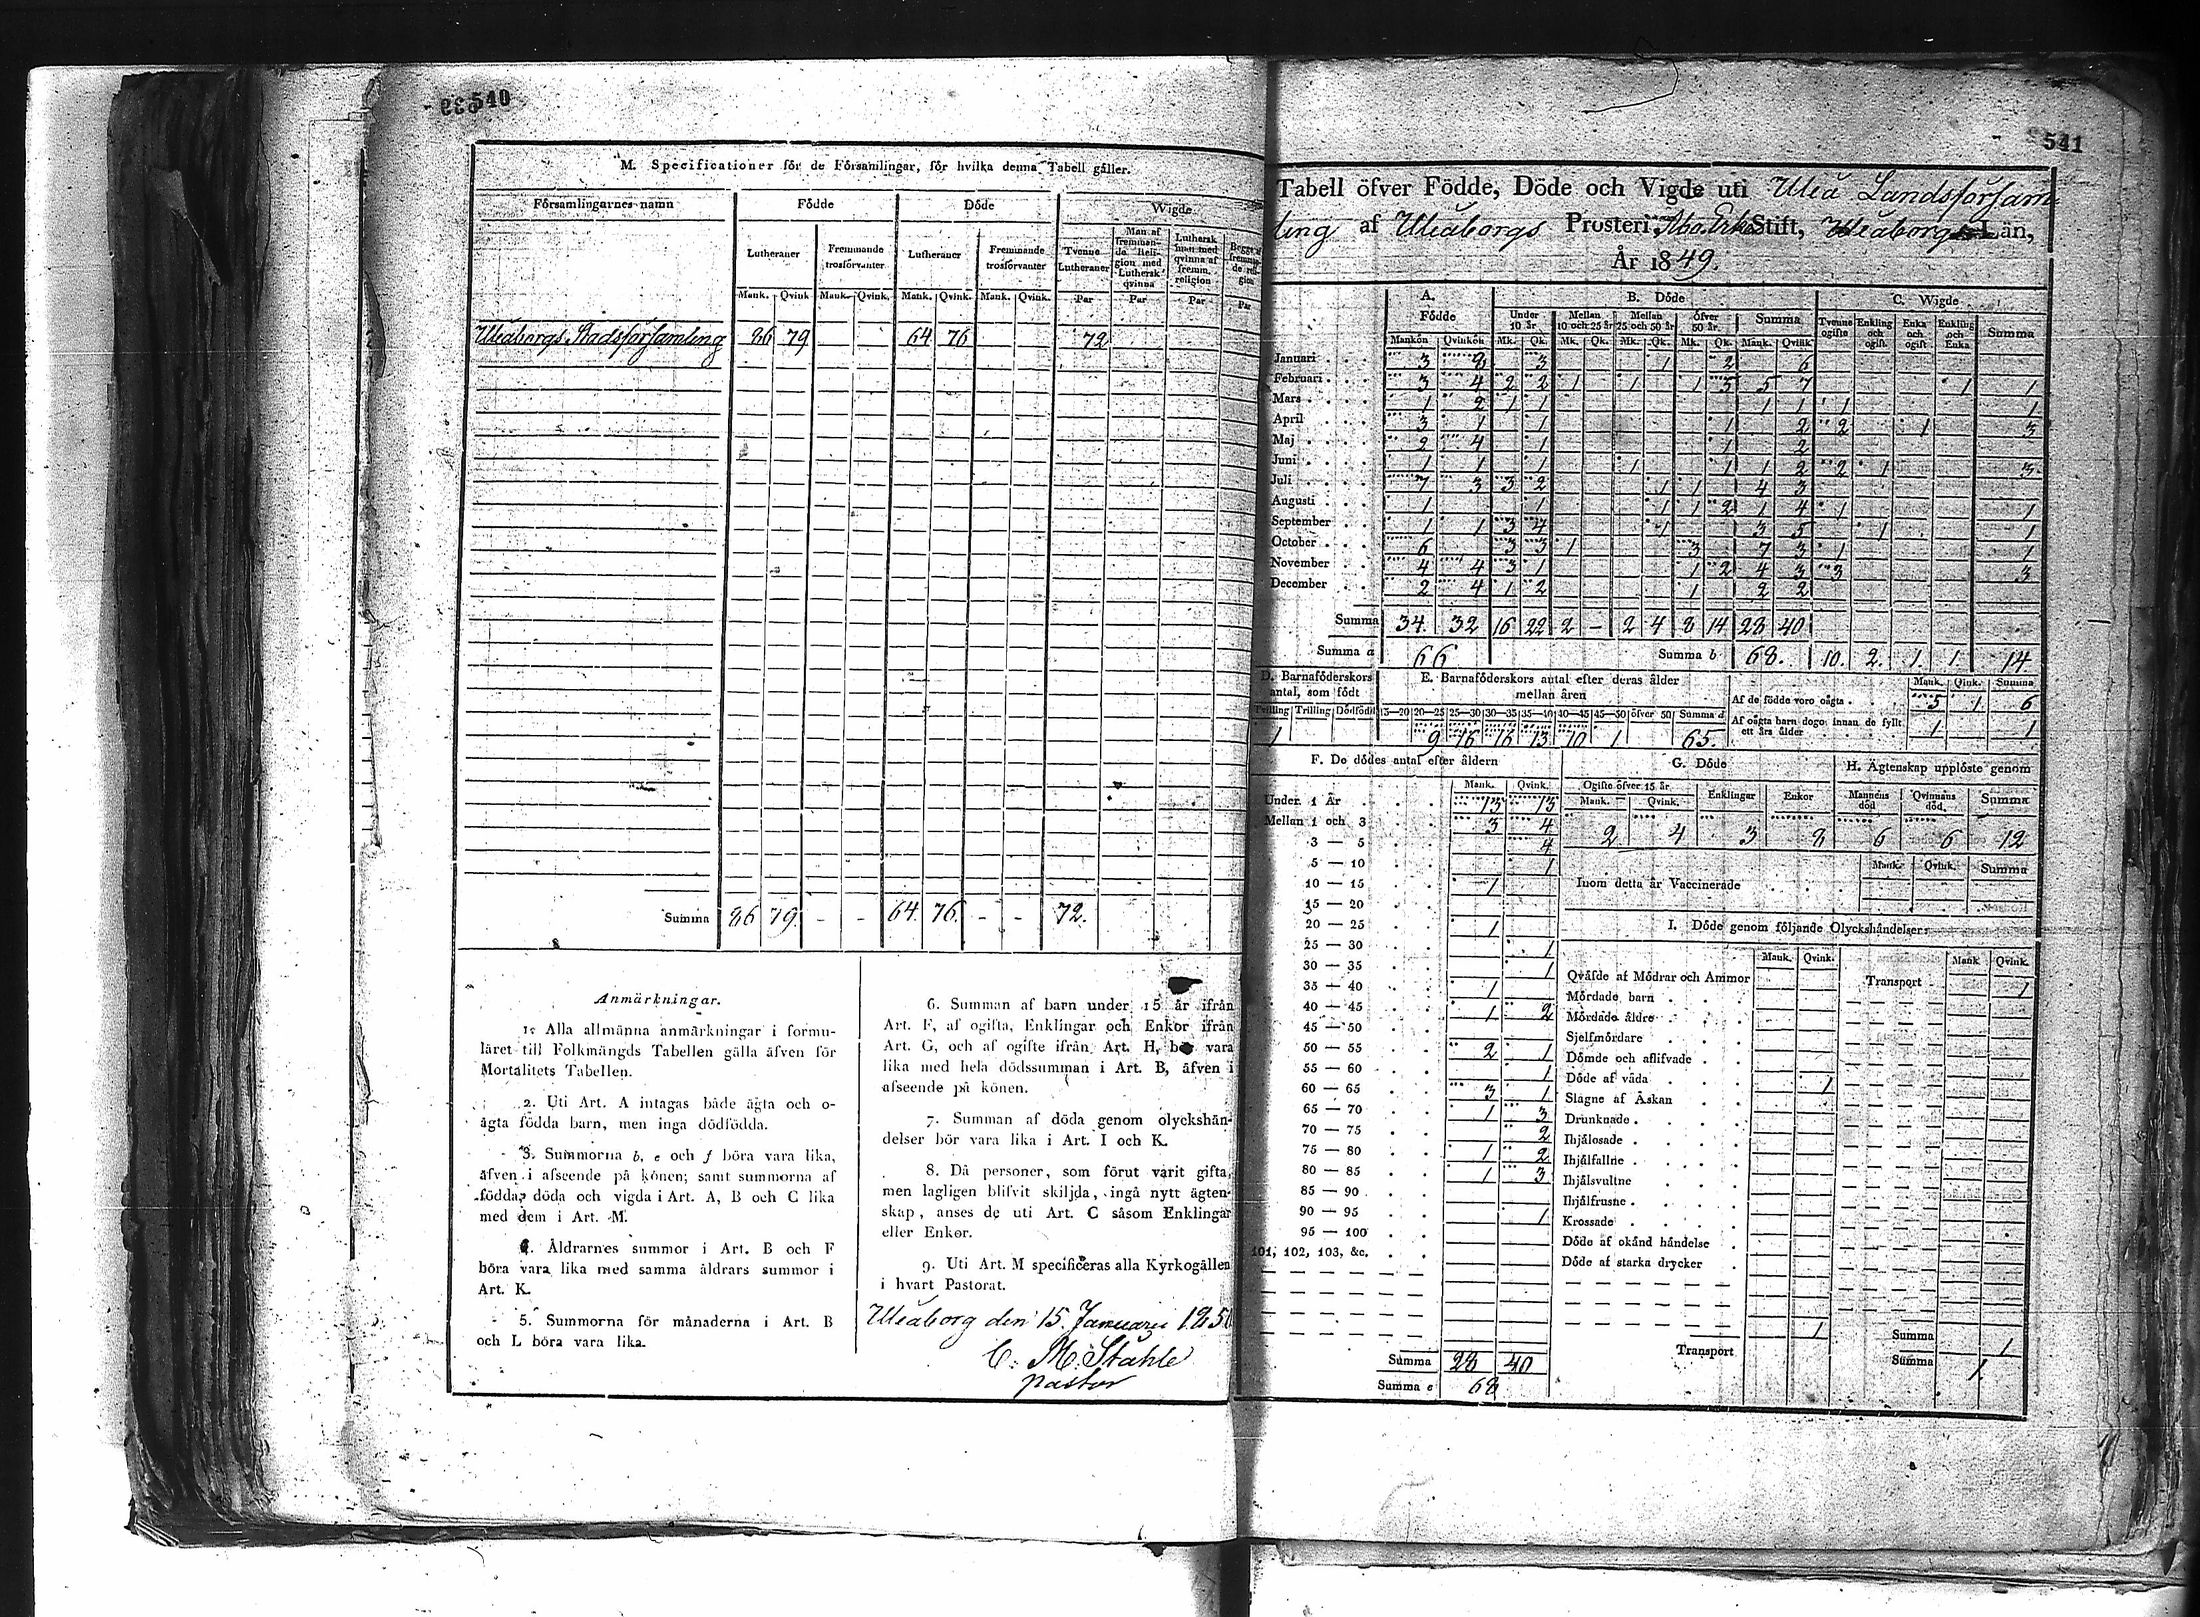 540
M. Specificationer för de Församlingar, för hvilka denna Tabell gäller.
Församlingarnes namn Födde Döde Wigde
Lutheraner Fremmande trosförvanter Lutheraner Fremmande trosförvanter Tvenne Lutheraner Man af fremman-de Reli-gion med Luthersk qvinna Luthersk man med qvinna af fremm. religion Begge af fremman-de reli-gion
Mank. Qvink Mank. Qvink. Mank. Qvink. Mank. Qvink. Par Par Par Par
Uleåborgs Stadsförsamling 86 79 64 76 72
Summa 86 79. - - 64. 76. - - 72.
Anmärkningar.
1. Alla allmänna anmärkningar i formu-
läret till Folkmängds Tabellen gälla äfven för
Mortalitets Tabellen.
2. Uti Art. A intagas både ägta och o-
ägta födda barn, men inga dödfödda.
3. Summorna b, e och f böra vara lika,
äfven i afseende på könen; samt summorna af
födda, döda och vigda i Art. A, B och C lika
med dem i Art. M.
4. Åldrarnes summor i Art. B och F
böra vara lika med samma åldrars summor i
Art. K.
5. Summorna för månaderna i Art. B
och L böra vara lika.
6. Summan af barn under 15 år ifrån
Art. F, af ogifta, Enklingar och Enkor ifrån
Art. G, och af ogifte ifrån Art. H, bör vara
lika med hela dödssumman i Art. B, äfven i
afseende på könen.
7. Summan af döda genom olyckshän-
delser bör vara lika i Art. I och K.
8. Då personer, som förut varit gifta,
men lagligen blifvit skiljda, ingå nytt ägten-
skap, anses de uti Art. C såsom Enklingar
eller Enkor.
9. Uti Art. M specificeras alla Kyrkogällen
i hvart Pastorat.
Uleåborg den 15. Januarii 1850
C. M. Ståhle
pastor
541
Tabell öfver Födde, Döde och Vigde uti Uleå Landsförsam-
ling af Uleåborgs Prosteri Åbo Erke Stift, Uleåborgs Län,
År 1849.
A. Födde B. Döde C. Wigde
Under 10 år Mellan 10 och 25 år Mellan 25 och 50 år öfver 50 år. Summa Tvenne ogifte Enkling och ogift Enka och ogift Enkling och Enka Summa
Mankön Qvinkön Mk. Qk. Mk. Qk. Mk. Qk. Mk. Qk. Mank. Qvink
Januari 3 8 3 1 2 6
Februari 3 4 2 2 1 1 1 5 5 7 1 1
Mars 1 2 1 1 1 1 1 1
April 3 1 1 1 2 2 1 3
Maj 2 4 1 1 2
Juni 1 1 1 1 1 1 2 2 1 3
Juli 7 3 3 2 1 1 4 3
Augusti 1 1 1 1 2 1 4 1 1
September 1 1 3 4 1 3 5 1 1
October 6 3 3 1 3 7 3 1 1
November 4 4 3 1 1 2 4 3 3 3
December 2 4 1 2 1 2 2
Summa 34. 32 16 22 2 - 2 4 8 14 28 40
Summa a 66 Summa b 68. 10. 2. 1. 1. 14
D. Barnaföderskors antal, som födt
Tvilling Trilling Dödfödt
1
E. Barnaföderskors antal efter deras ålder mellan åren
15—20 20—25 25—30 30—35 35—40 40—45 45—50 öfver 50 Summa d
9 16 16 13 10 1 65.
Mank. Qvink. Summa
Af de födde voro oägta 5 1 6
Af oägta barn dogo innan de fyllt ett års ålder 1 1
F. De dödes antal efter åldern
Mank. Qvink.
Under 1 År 13 13
Mellan 1 och 3 3 4
3 — 5 4
5 — 10 1
10 — 15 1
15 — 20
20 — 25 1
25 — 30 1
30 — 35 1
35 — 40 1
40 — 45 1 2
45 — 50
50 — 55 2 1
55 — 60 1
60 — 65 3 1
65 — 70 1 3
70 — 75 2
75 — 80 1 2
80 — 85 1 3
85 — 90
90 — 95 1
95 — 100
101, 102, 103, &c.
Summa 28 40
Summa e 68
G. Döde
Ogifte öfver 15 år Enklingar Enkor
Mank. Qvink.
2 4 3 8
H. Ägtenskap upplöste genom
Mannens död Qvinnans död. Summa
6 6 12
Mank. Qvink. Summa
Inom detta år Vaccinerade
I. Döde genom följande Olyckshändelser
Mank. Qvink. Mank Qvink.
Qväfde af Mödrar och Ammor
Mördade barn
Mördade äldre
Sjelfmördare
Dömde och aflifvade
Döde af våda 1
Slagne af Åskan
Drunknade
Ihjälosade
Ihjälfallne
Ihjälsvultne
Ihjälfrusne
Krossade
Döde af okänd händelse
Döde af starka drycker
Transport 1
Transport 1
Summa 1
Summa 1